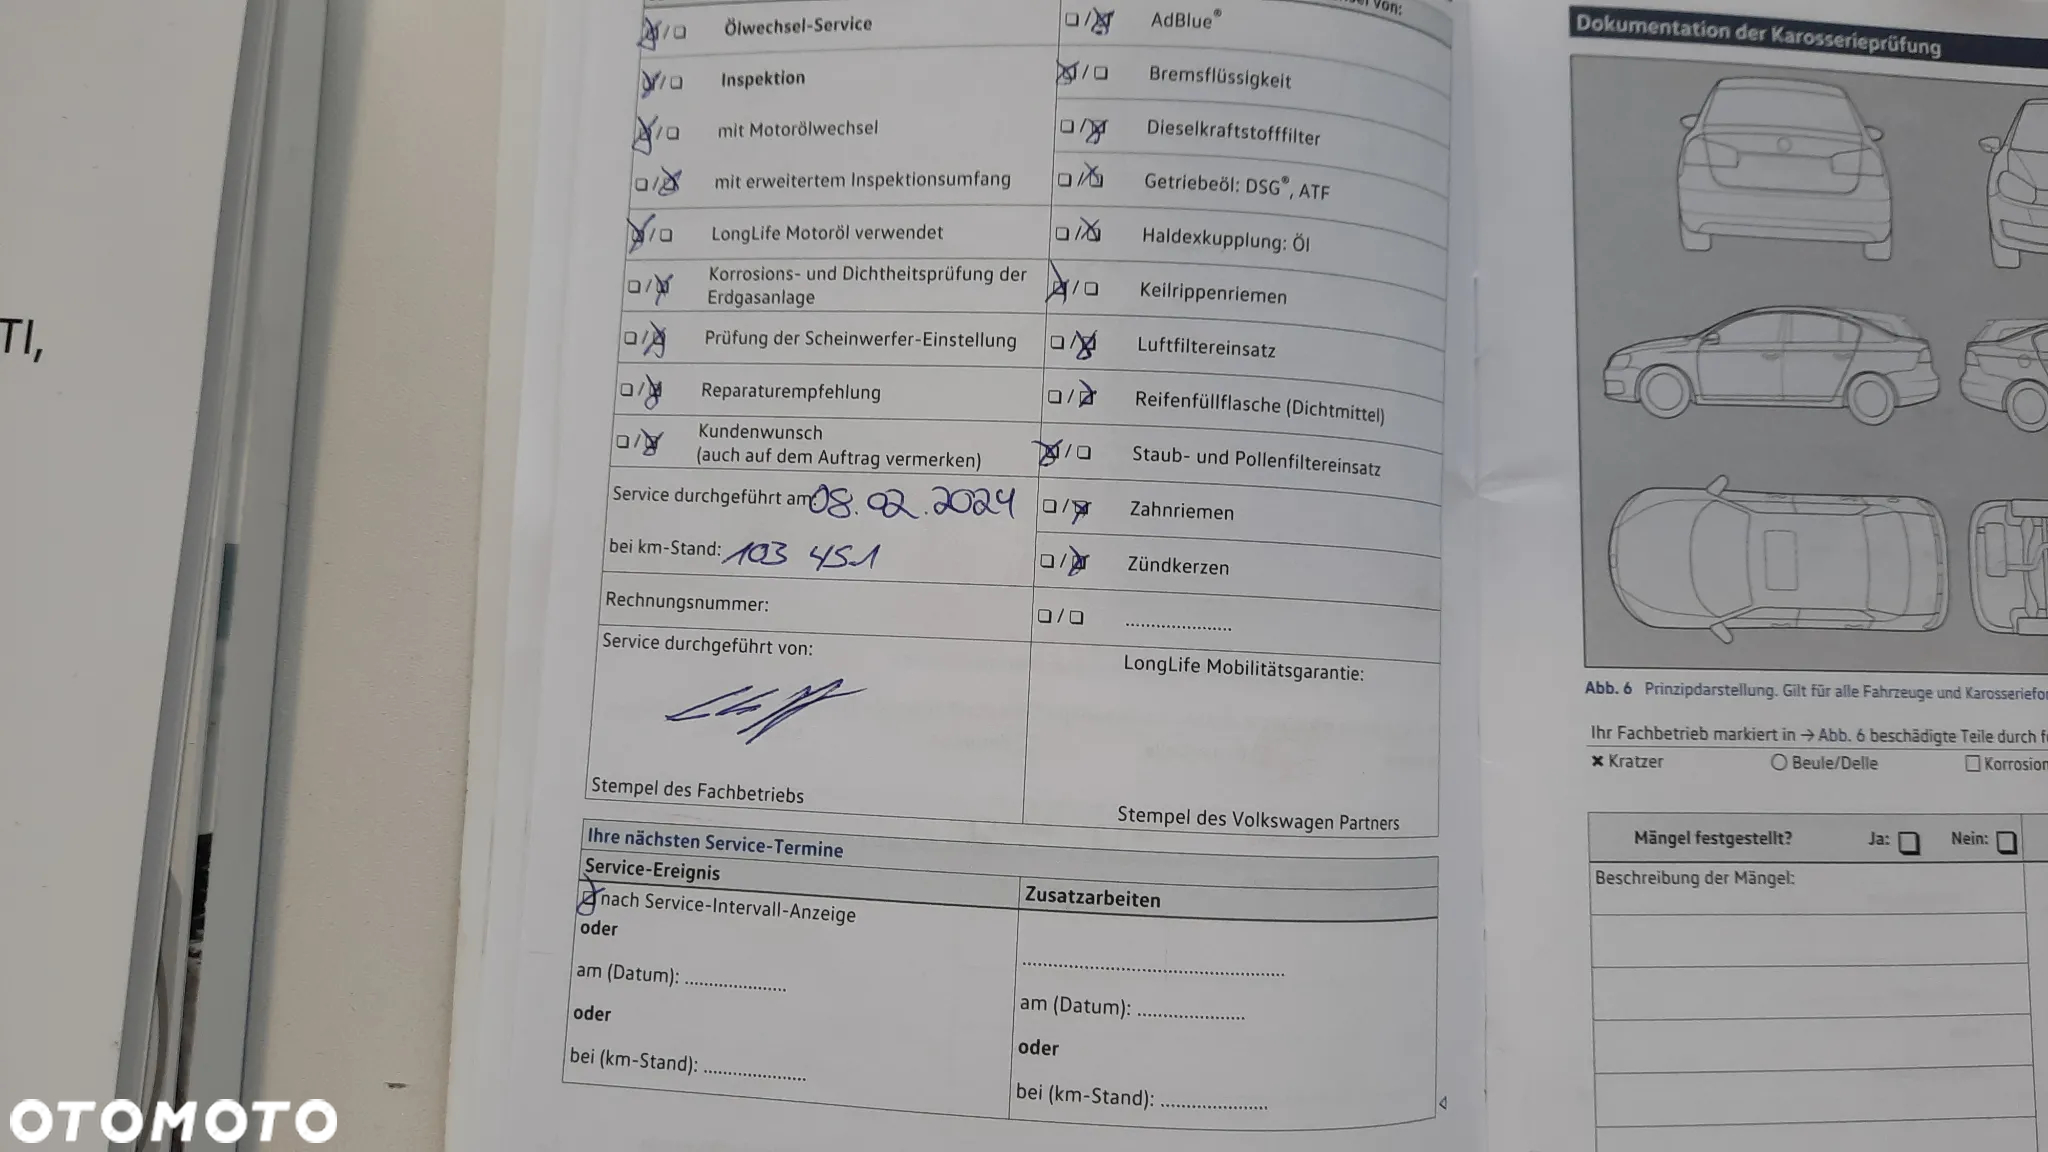 TI,
von:
Ölwechsel-Service
Inspektion
mit Motorölwechsel
mit erweitertem Inspektionsumfang
LongLife Motoröl verwendet
Korrosions- und Dichtheitsprüfung der
Erdgasanlage
Prüfung der Scheinwerfer-Einstellung
Reparaturempfehlung
Kundenwunsch
(auch auf dem Auftrag vermerken)
Service durchgeführt am: 08.02.2024
bei km-Stand: 103 451
Rechnungsnummer:
Service durchgeführt von:
Stempel des Fachbetriebs
AdBlue®
Bremsflüssigkeit
Dieselkraftstofffilter
Getriebeöl: DSG®, ATF
Haldexkupplung: Öl
Keilrippenriemen
Luftfiltereinsatz
Reifenfüllflasche (Dichtmittel)
Staub- und Pollenfiltereinsatz
Zahnriemen
Zündkerzen
....................
LongLife Mobilitätsgarantie:
Stempel des Volkswagen Partners
Ihre nächsten Service-Termine
Service-Ereignis
nach Service-Intervall-Anzeige
oder
am (Datum): ....................
oder
bei (km-Stand): ....................
Zusatzarbeiten
..................................................
am (Datum): .....................
oder
bei (km-Stand): .....................
Dokumentation der Karosserieprüfung
Abb. 6 Prinzipdarstellung. Gilt für alle Fahrzeuge und Karosseriefo
Ihr Fachbetrieb markiert in → Abb. 6 beschädigte Teile durch f
✖ Kratzer ○ Beule/Delle □ Korrosion
Mängel festgestellt? Ja: □ Nein: □
Beschreibung der Mängel:
OTOMOTO